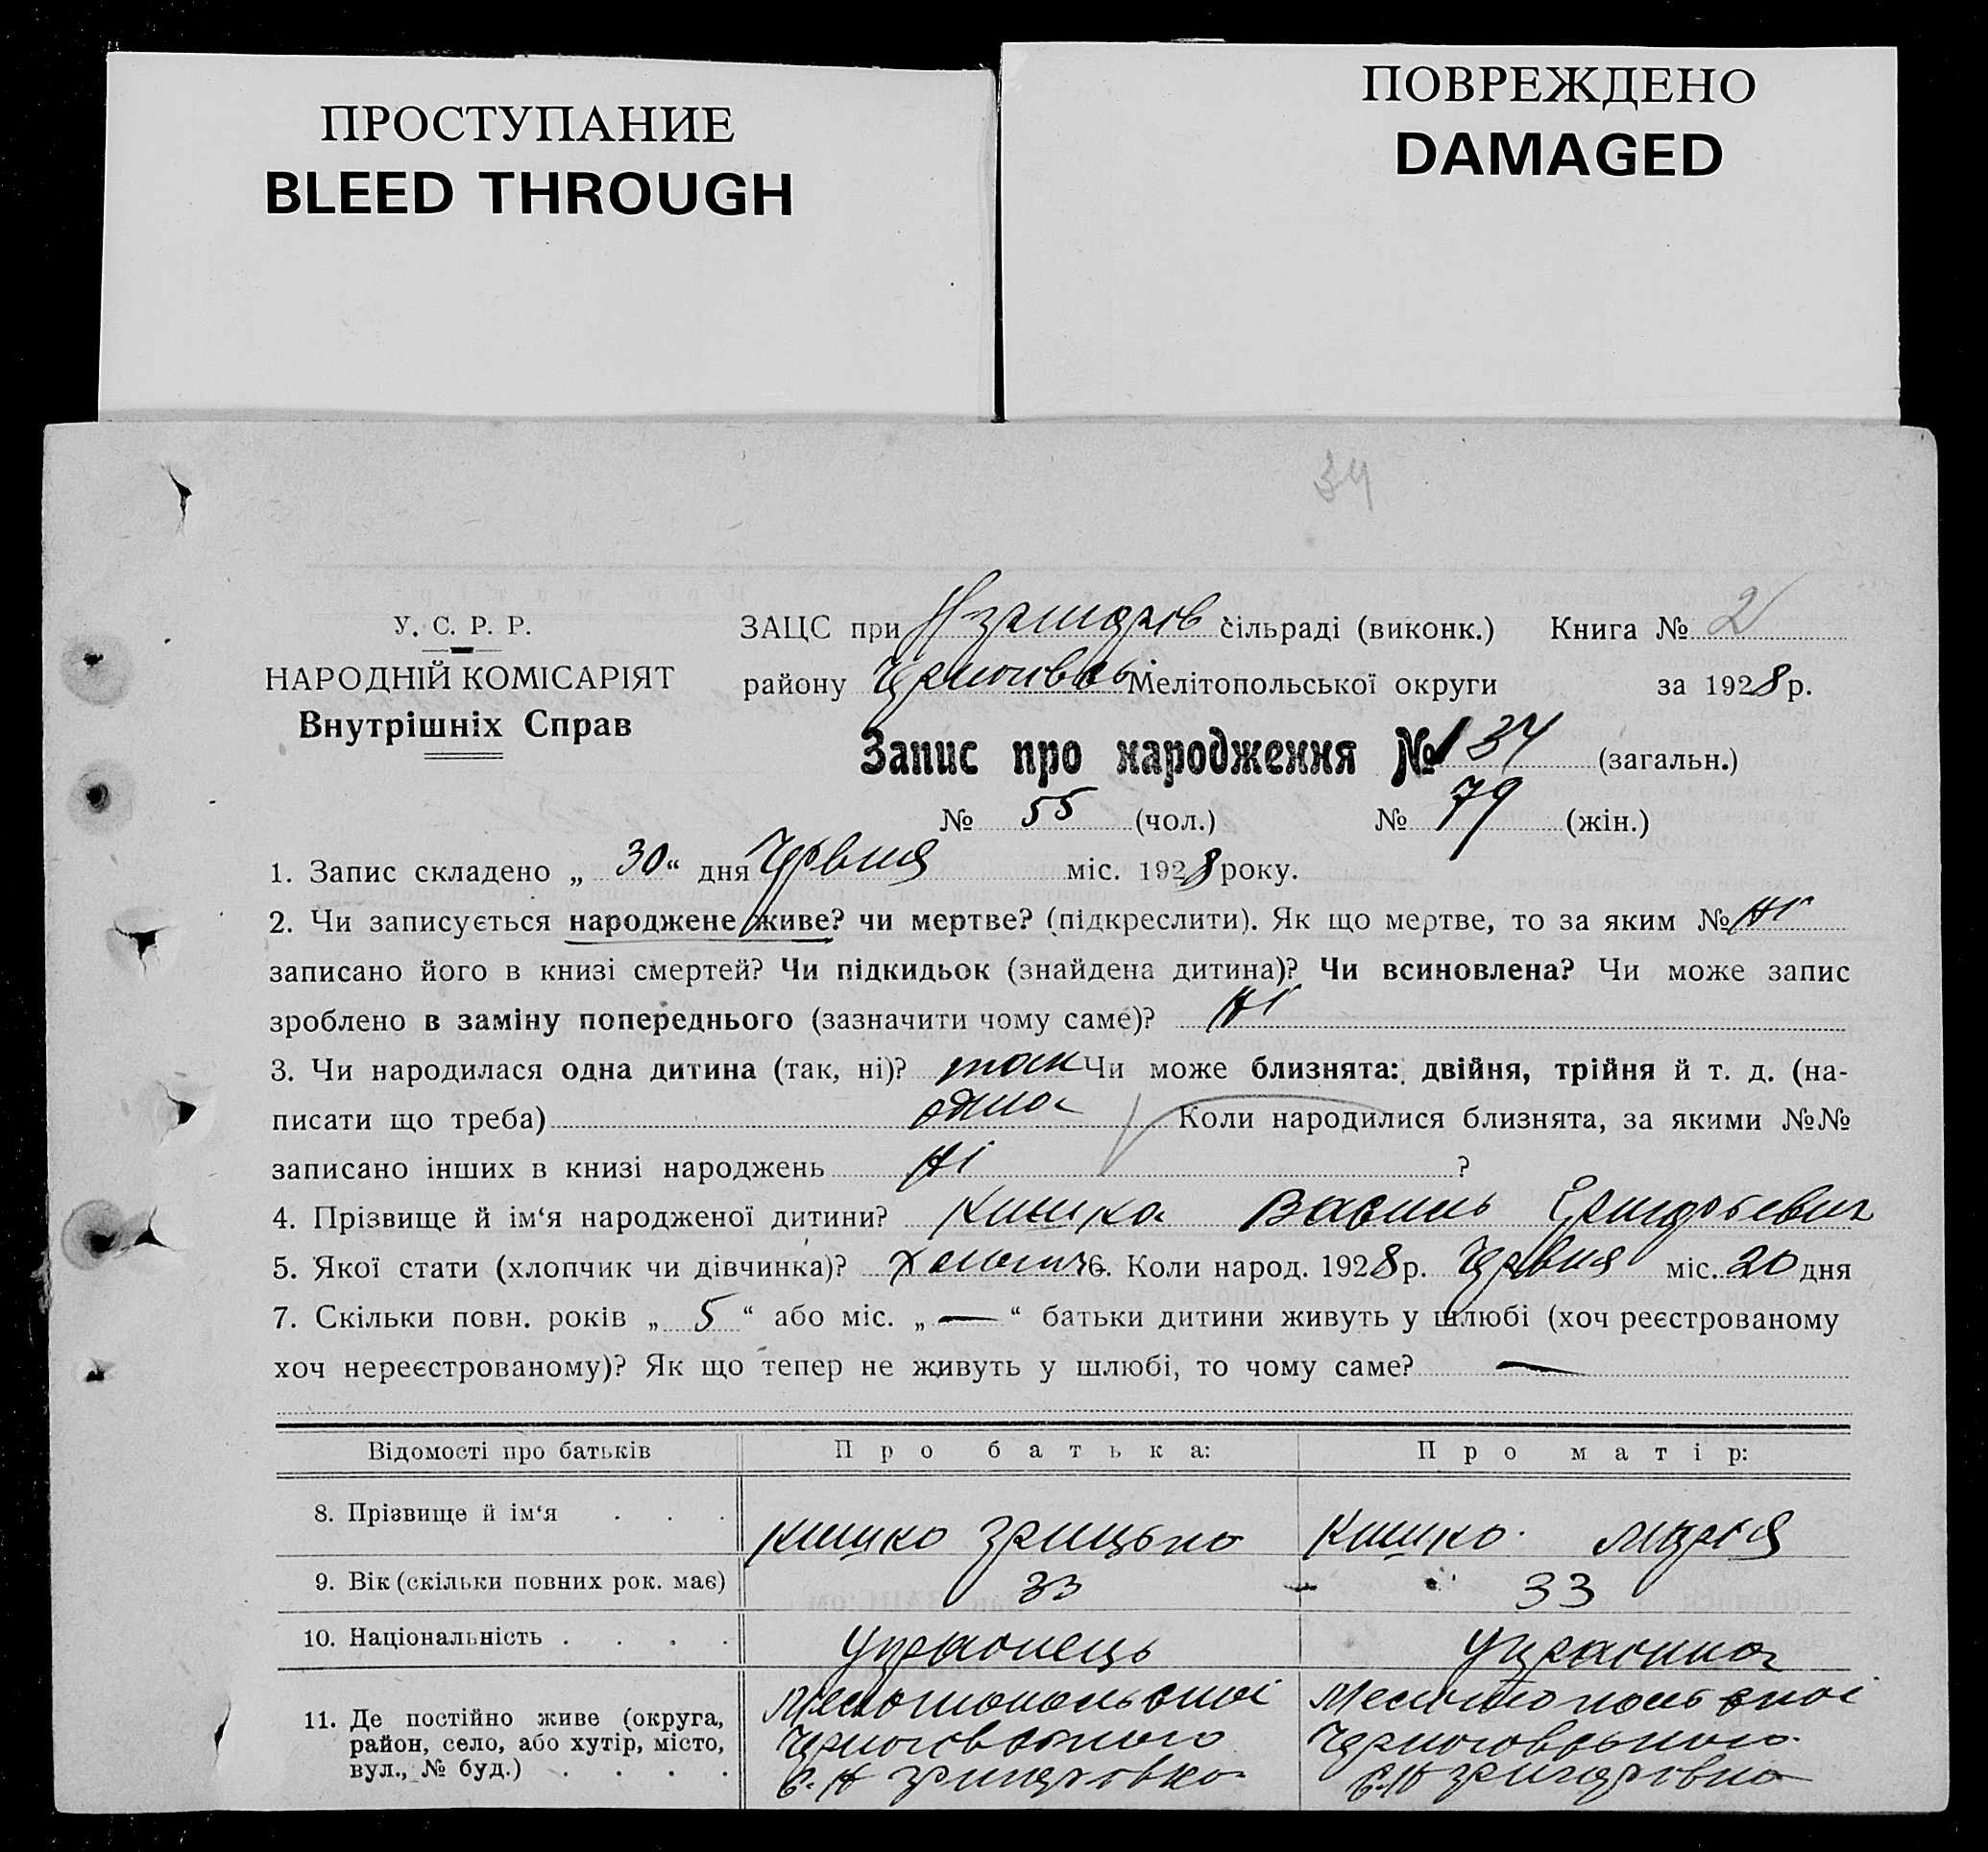 ПРОСТУПАНИЕ
BLEED THROUGH
ПОВРЕЖДЕНО
DAMAGED
34
У. С. Р. Р.
НАРОДНІЙ КОМІСАРІЯТ
Внутрішніх Справ
ЗАЦС при сільраді (виконк.) Книга № 2
району Мелітопольської округи за 1928 р.
Запис про народження № 134 (загальн.)
№ 55 (чол.) № 79 (жін.)
1. Запис складено „ 30 “ дня Червня міс. 1928 року.
2. Чи записується народжене живе? чи мертве? (підкреслити). Як що мертве, то за яким № ні
записано його в книзі смертей? Чи підкидьок (знайдена дитина)? Чи всиновлена? Чи може запис
зроблено в заміну попереднього (зазначити чому саме)? ні
3. Чи народилася одна дитина (так, ні)? так Чи може близнята: двійня, трійня й т. д. (на-
писати що треба) одна Коли народилися близнята, за якими №№
записано інших в книзі народжень ні ?
4. Прізвище й ім‘я народженої дитини? Кишко Василь
5. Якої стати (хлопчик чи дівчинка)? 6. Коли народ. 1928 р. Червня міс. 20 дня
7. Скільки повн. років „ 5 “ або міс. „ — “ батьки дитини живуть у шлюбі (хоч реєстрованому
хоч нереєстрованому)? Як що тепер не живуть у шлюбі, то чому саме? —
Відомості про батьків Про батька: Про матір:
8. Прізвище й ім‘я . . . Кишко Грицько Кишко Марія
9. Вік (скільки повних рок. має) 33 33
10. Національність . . . . Українець Українка
11. Де постійно живе (округа, Мелітопольської Мелітопольської
район, село, або хутір, місто, Черниговського Черниговського
вул., № буд.) . . . . с. Н Григоровка с. Н Григоровка